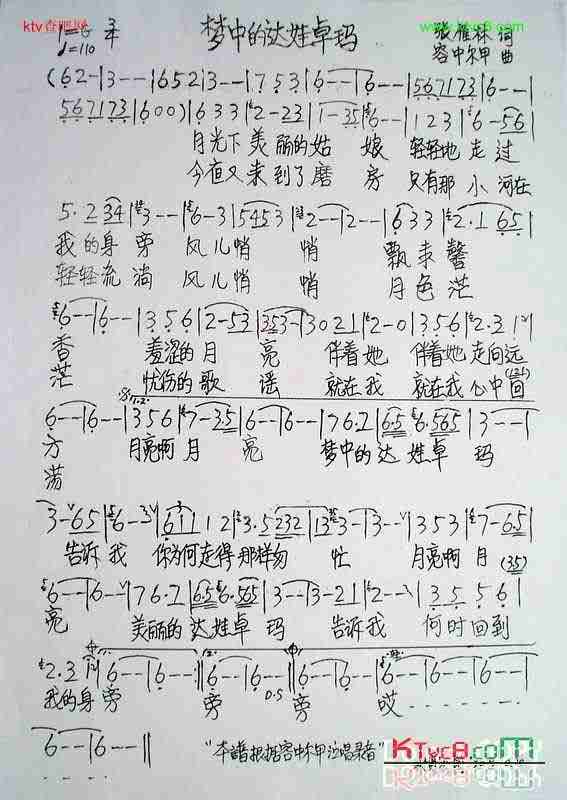 ktv查吧网
www.ktvc8.com
1=G 3/4
♩=110
梦中的达娃卓玛
张雁林 词
容中尔甲 曲
(62-|3--|1652|3--|1753|6--|6--|567123|6--|
567123|600)|633|2-23|1-35|6--|123|6-56|
月光下 美丽的姑 娘 轻轻地 走 过
今夜又 来到了磨 房 只有那 小 河在
5.234|3--|6-3|5453|2--|2--|633|2.165|
我的身 旁 风儿悄 悄 飘来馨
轻轻流 淌 风儿悄 悄 月色茫
6--|6--|356|2-53|353-|3021|2-0|356|2.31|
香 羞涩的月 亮 伴着她 伴着她 走向远
茫 忧伤的歌 谣 就在我 就在我 心中回
6--|6--|356|7-35|6--|6--|76.2|656.565|3--|
方 月亮啊 月 亮 梦中的达 娃卓 玛
荡
3-65|6-3|6112|3.5232|133-|3--|353|7-65|
告诉 我 你为何走得 那样匆 忙 月亮啊 月 (35)
6--|6--|76.2|656.565|3--|3-21|2--|3556|
亮 美丽的达娃卓 玛 告诉我 何时回到
2.3|6--|6--|6--|6--|6--|6--|6--|6--|6--|6--|
我的身 旁 旁 D.S 旁 哎
6--|6--||
"本谱根据容中尔甲演唱录音"
KTvc8.com